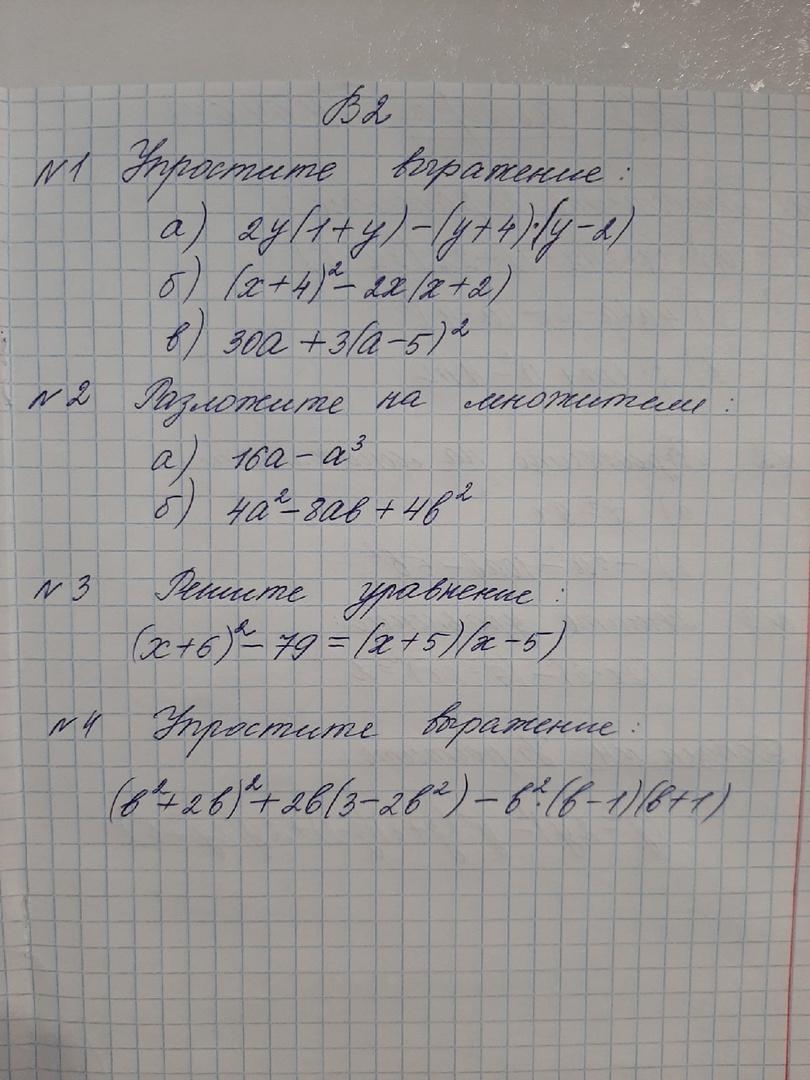 В2
№1 Упростите выражение:
а) 2y(1+y)-(y+4)·(y-2)
б) (x+4)²-2x(x+2)
в) 30a+3(a-5)²
№2 Разложите на множители:
а) 16a-a³
б) 4a²-8ab+4b²
№3 Решите уравнение:
(x+6)²-79=(x+5)(x-5)
№4 Упростите выражение:
(b²+2b)²+2b(3-2b²)-b²·(b-1)(b+1)